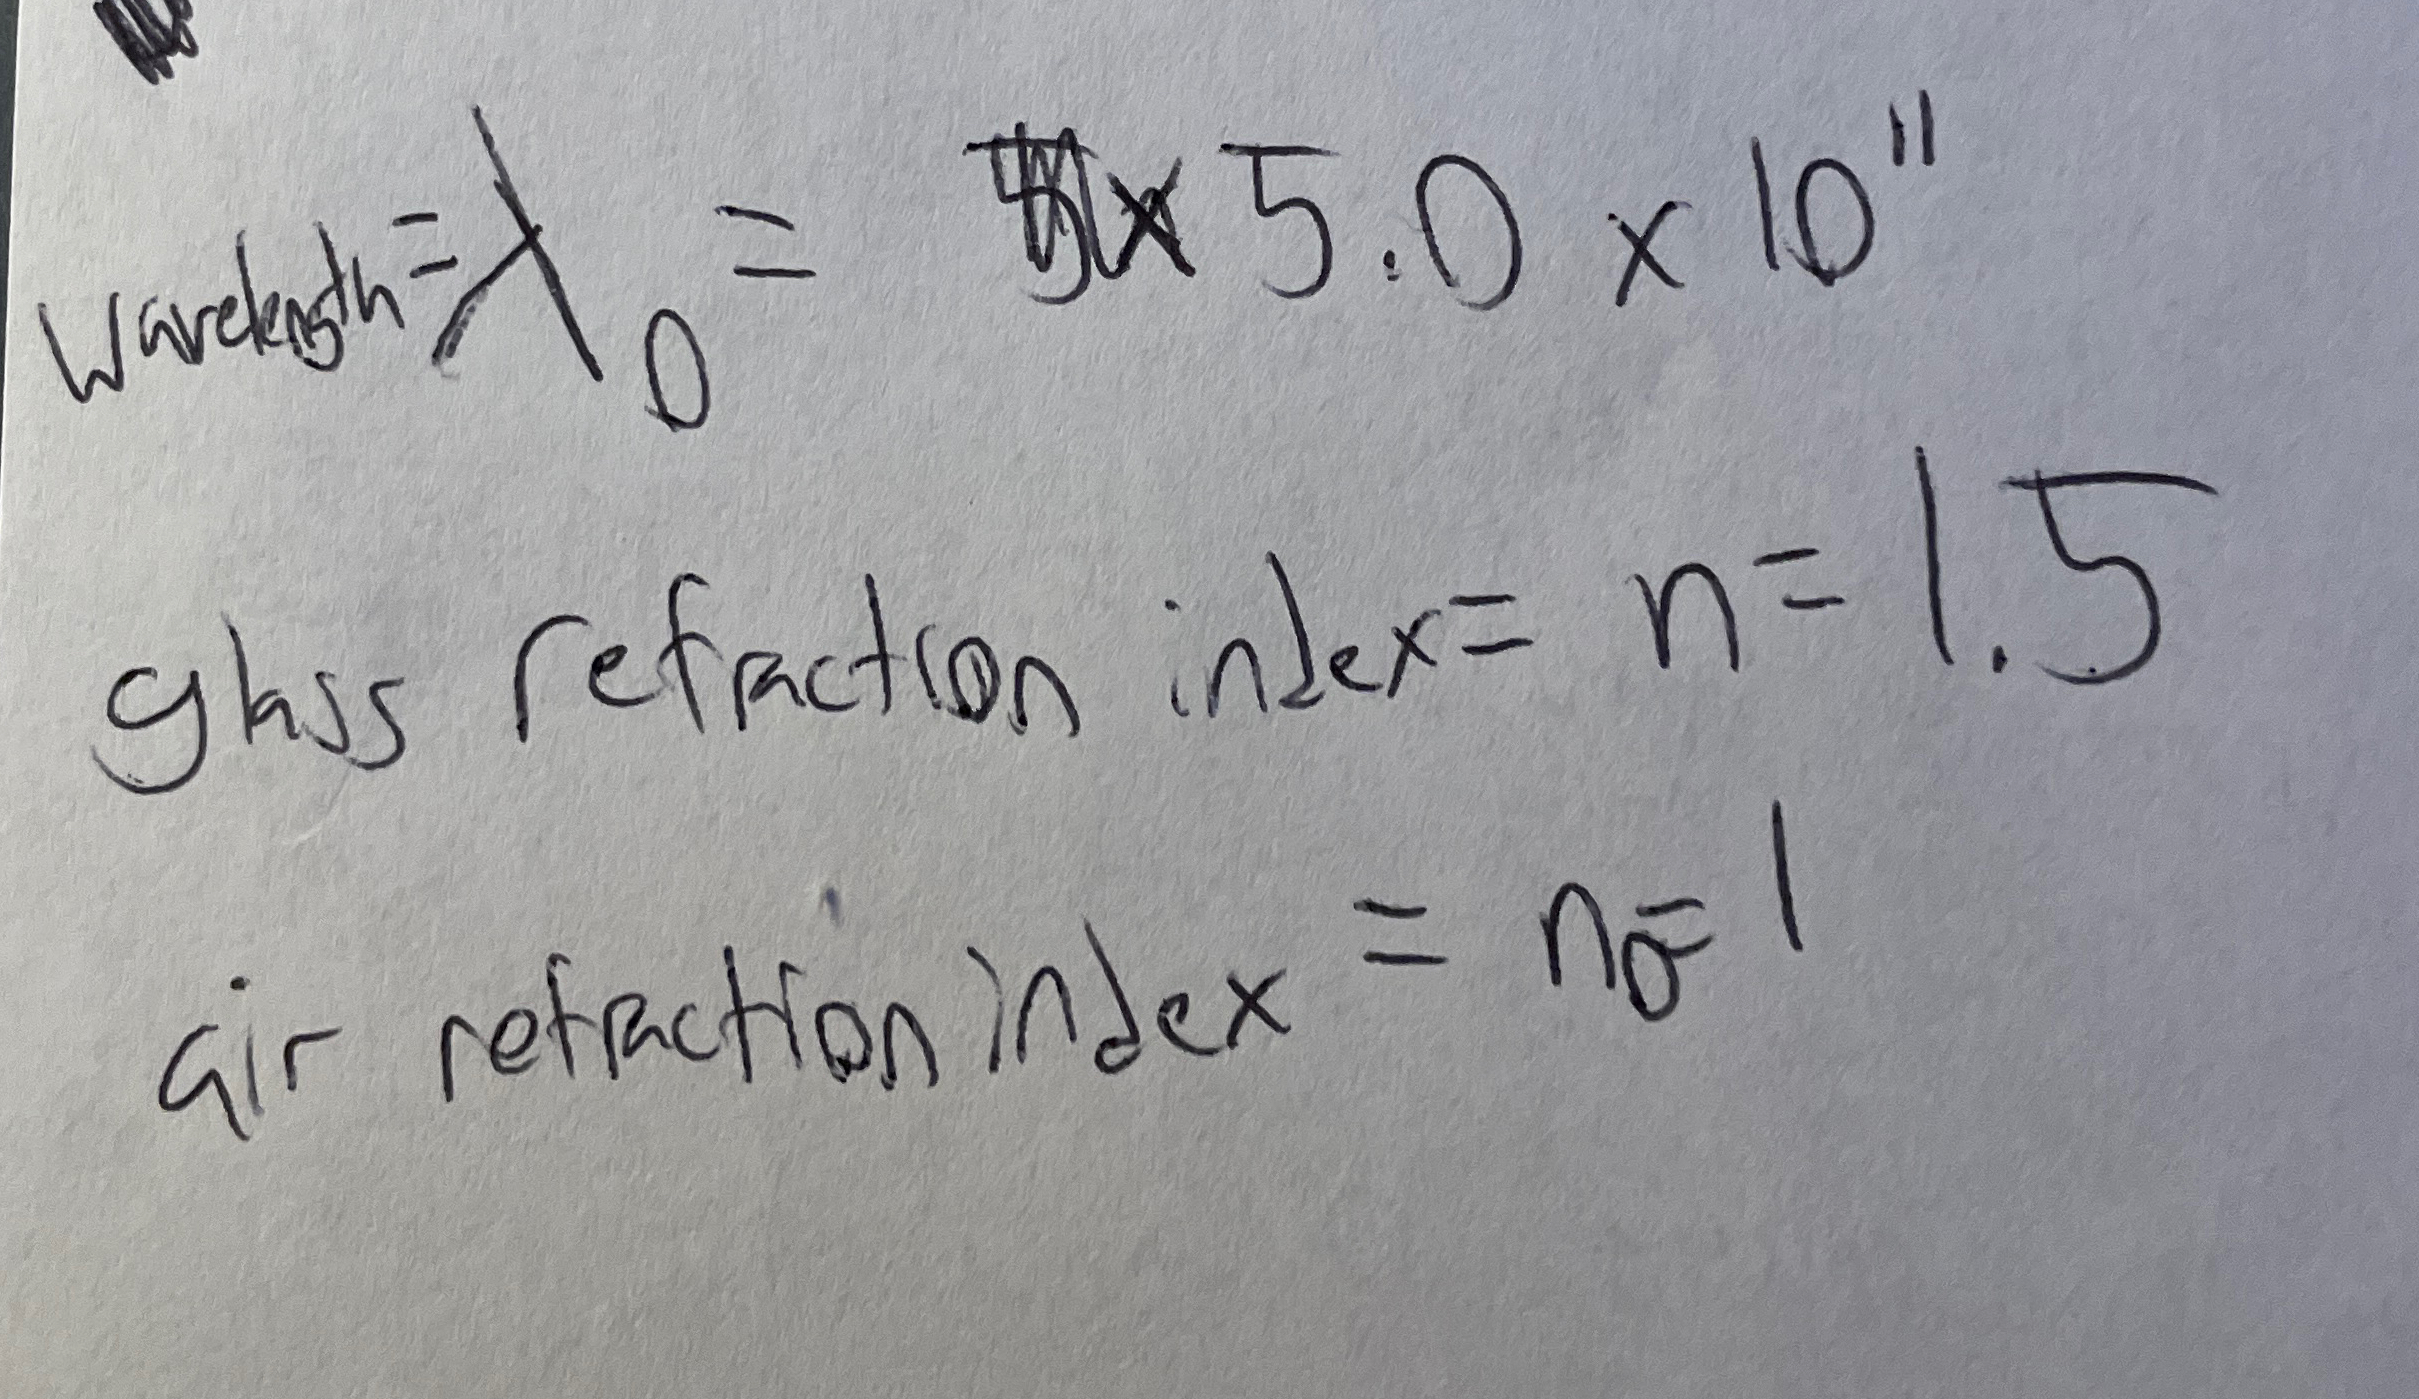 wavelength = λ₀ = 5.0 x 10¹¹
glass refraction index = n = 1.5
air refraction index = n₀ = 1